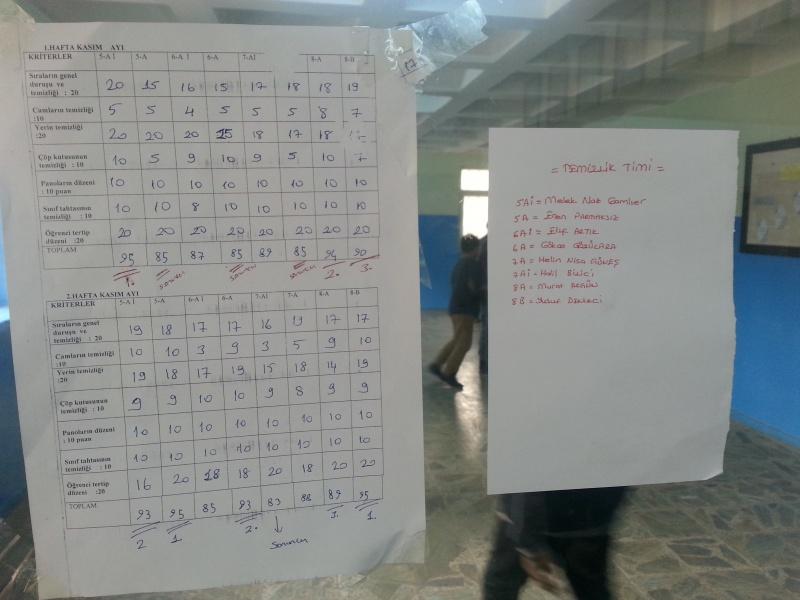 1.HAFTA KASIM AYI
KRITERLER 5-A İ 5-A 6-A İ 6-A 7-Aİ 8-A 8-B
Sıraların genel duruşu ve temizliği : 20 20 15 16 15 17 18 18 19
Camların temizliği :10 5 5 4 5 5 5 8 7
Yerin temizliği :20 20 20 20 15 18 17 18
Çöp kutusunun temizliği : 10 10 5 9 10 9 5 10 7
Panoların düzeni : 10 puan 10 10 10 10 10 10 10 10
Sınıf tahtasının temizliği : 10 10 10 8 10 10 10 10 10
Öğrenci tertip düzeni :20 20 20 20 20 20 20 20 20
TOPLAM 95 85 87 85 89 85 94 90
1. sonuncu sonuncu sonuncu 2. 3.
2.HAFTA KASIM AYI
KRITERLER 5-A İ 5-A 6-A İ 6-A 7-A İ 7-A 8-A 8-B
Sıraların genel duruşu ve temizliği : 20 19 18 17 17 16 19 17 17
Camların temizliği :10 10 10 3 9 3 5 9 10
Yerin temizliği :20 19 18 17 19 15 18 14 19
Çöp kutusunun temizliği : 10 9 9 10 10 9 8 9 9
Panoların düzeni : 10 puan 10 10 10 10 10 10 10 10
Sınıf tahtasının temizliği : 10 10 10 10 10 10 10 10 10
Öğrenci tertip düzeni :20 16 20 18 18 20 18 20 20
TOPLAM 93 95 85 93 83 88 89 95
2 1. 2. 3. 1.
Sonuncu
17
= TEMİZLİK TİMİ =
5Aİ = Melek Naz
5A = Eren PARMAKSIZ
6Aİ = Elif ARTIK
6A = Gökçe
7A = Helin Nisa GÜNEŞ
7Aİ = Halil Bilici
8A = Murat
8B = Yusuf